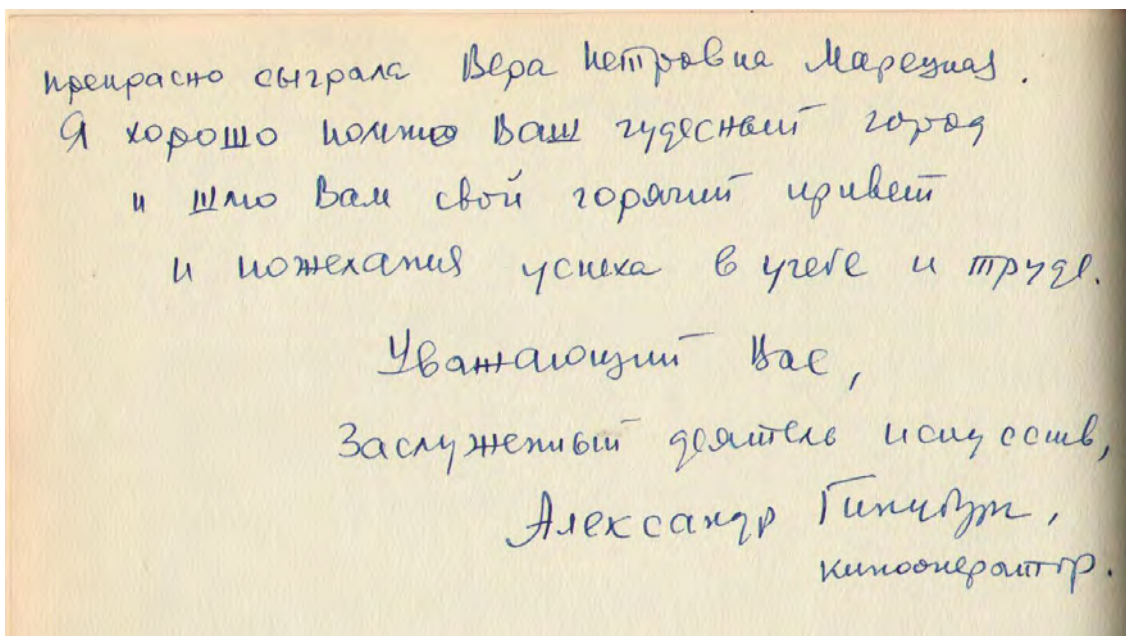 прекрасно сыграла Вера Петровна Марецкая.
Я хорошо помню Ваш чудесный город
и шлю Вам свой горячий привет
и пожелания успеха в учебе и труде.
Уважающий Вас,
Заслуженный деятель искусств,
Александр Гинцбург,
кинооператор.